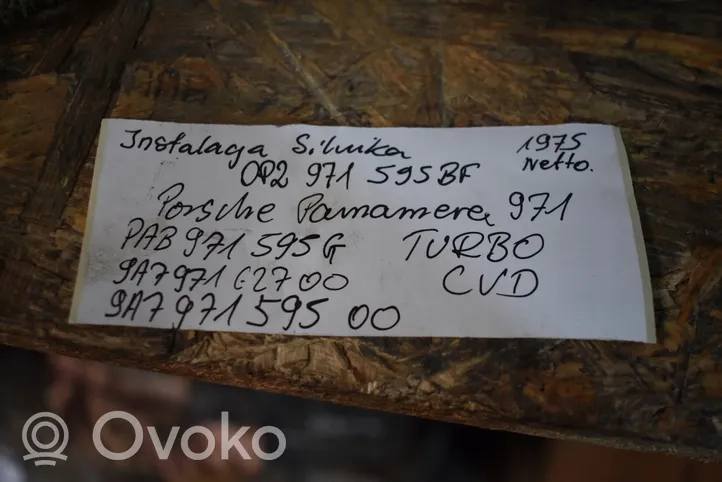 Instalacja Silnika 1975
0P2 971 595BF Netto.
Porsche Panamera 971
PAB 971 595G TURBO
9A7 971 627 00 CVD
9A7 971 595 00
Ovoko